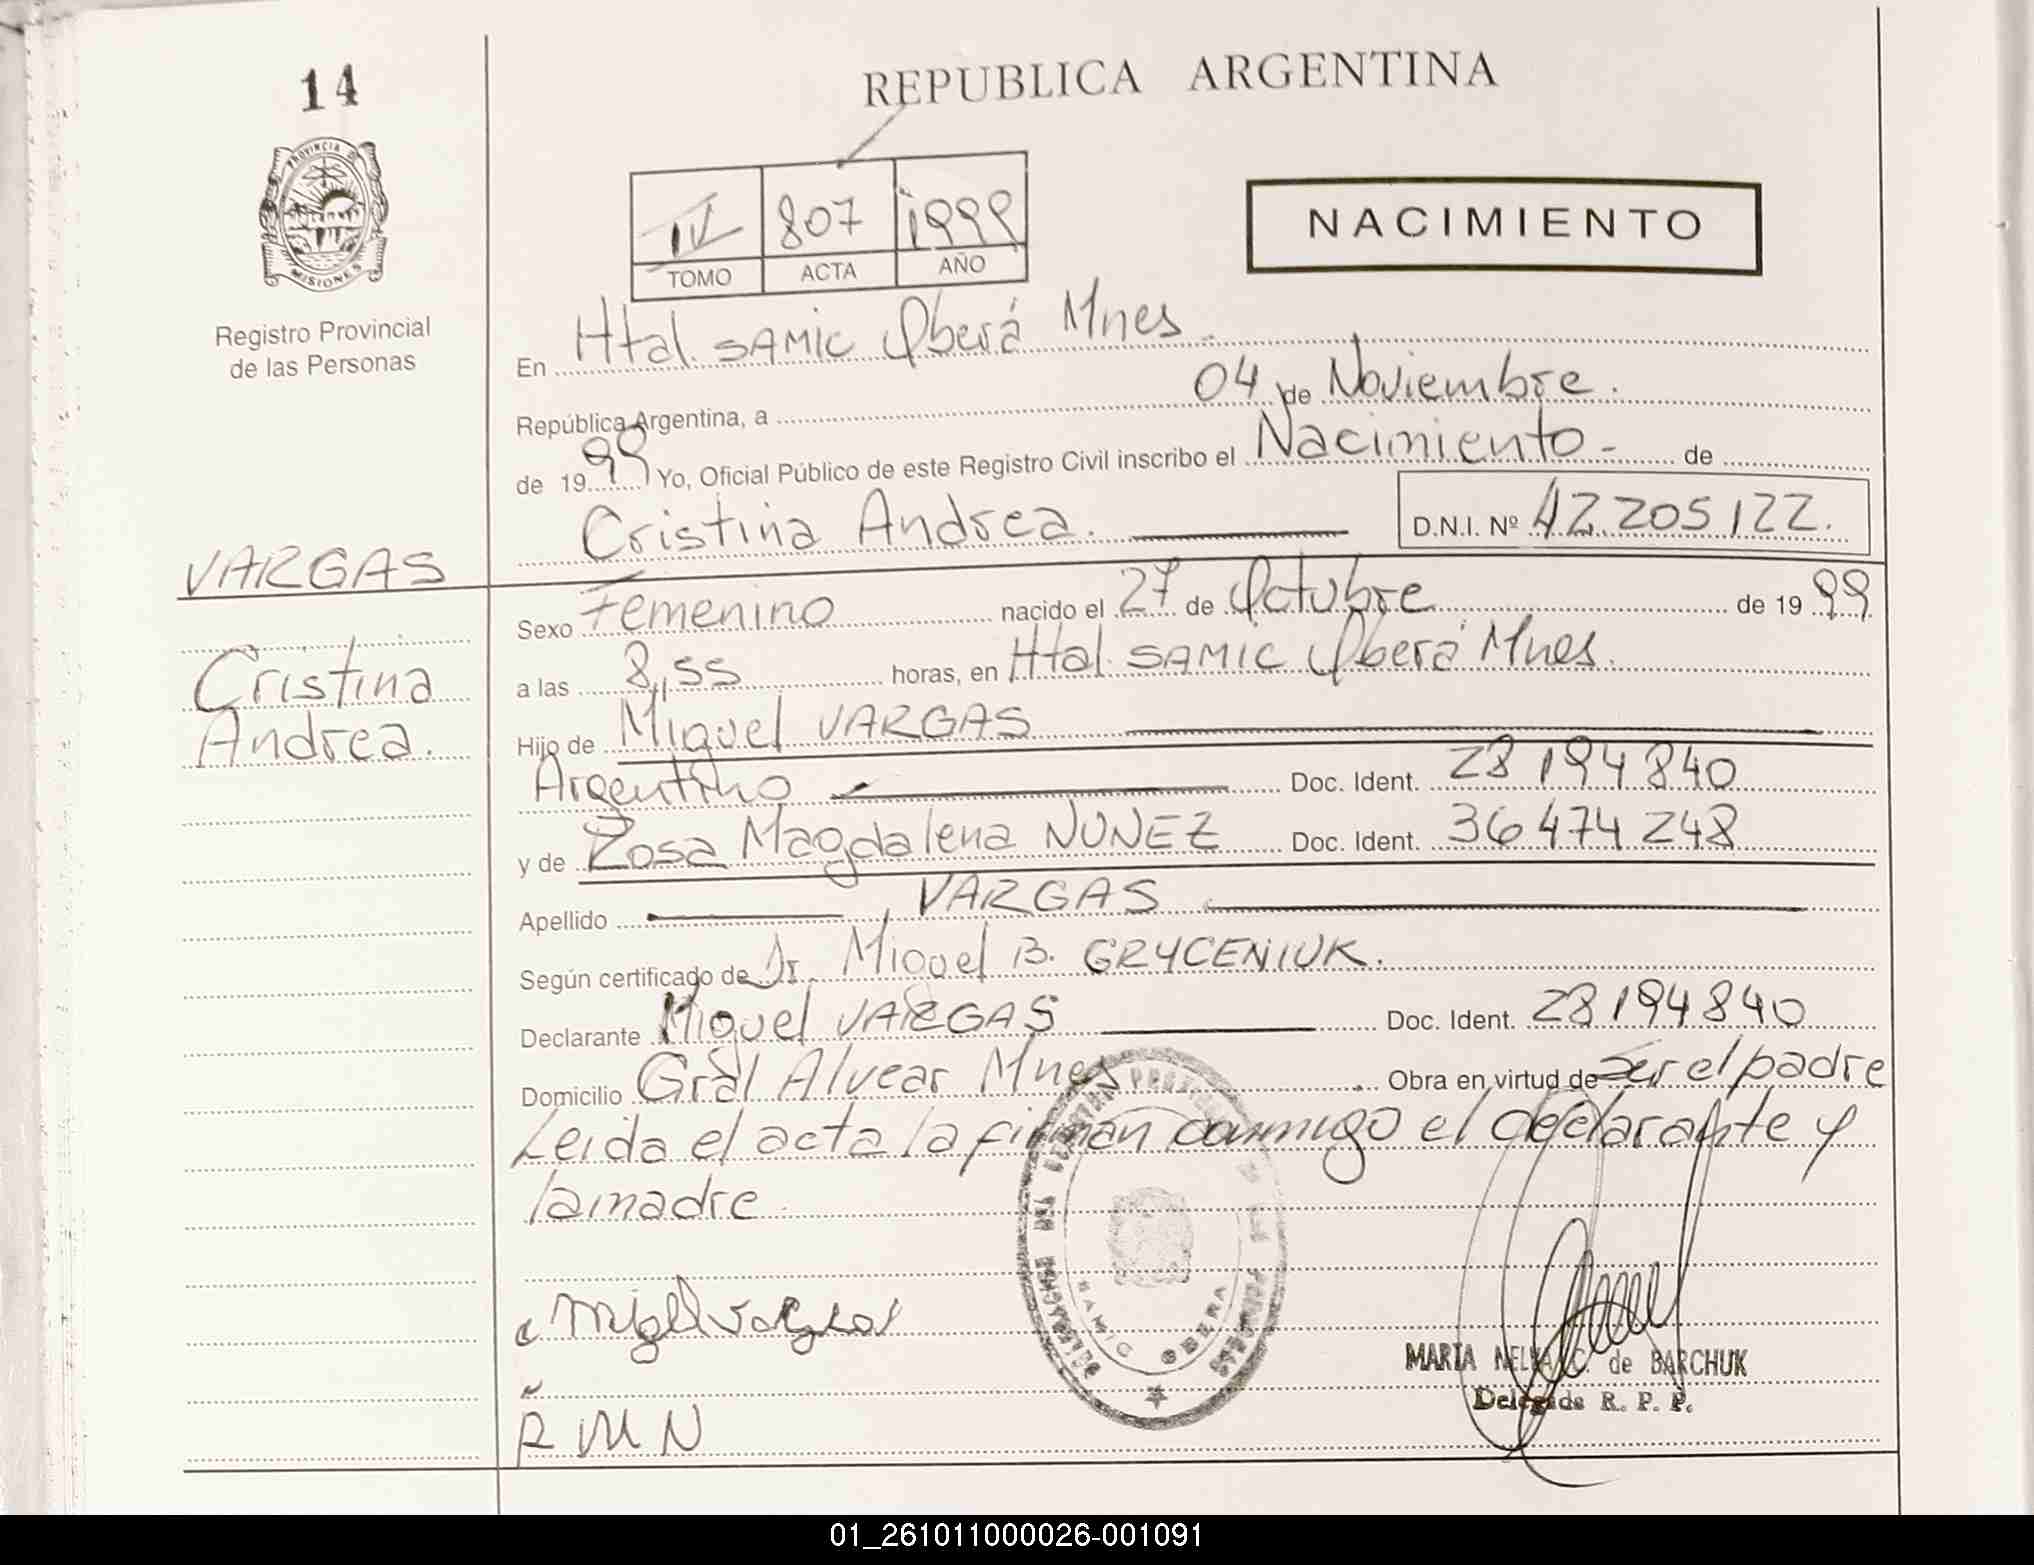 14
REPUBLICA ARGENTINA
PROVINCIA DE
MISIONES
Registro Provincial
de las Personas
IV 807 1999
TOMO ACTA AÑO
NACIMIENTO
En Htal. SAMIC Oberá Mnes.
República Argentina, a 04 de Noviembre.
de 1999 Yo, Oficial Público de este Registro Civil inscribo el Nacimiento - de
Cristina Andrea. D.N.I. Nº 42.205.122.
VARGAS
Cristina
Andrea.
Sexo Femenino nacido el 27 de Octubre de 1999
a las 8,,55 horas, en Htal. SAMIC Oberá Mnes.
Hijo de Miguel VARGAS
Argentino Doc. Ident. 28194840
y de Rosa Magdalena NUNEZ Doc. Ident. 36474248
Apellido VARGAS
Según certificado de Dr. Miguel B. GRYCENIUK.
Declarante Miguel VARGAS Doc. Ident. 28194840
Domicilio Gral Alvear Mnes Obra en virtud de ser el padre
Leida el acta la firman conmigo el declarante y
la madre.
SAMIC OBERA
MARIA NELVA C. de BARCHUK
Delegada R. P. P.
R M N
01_261011000026-001091